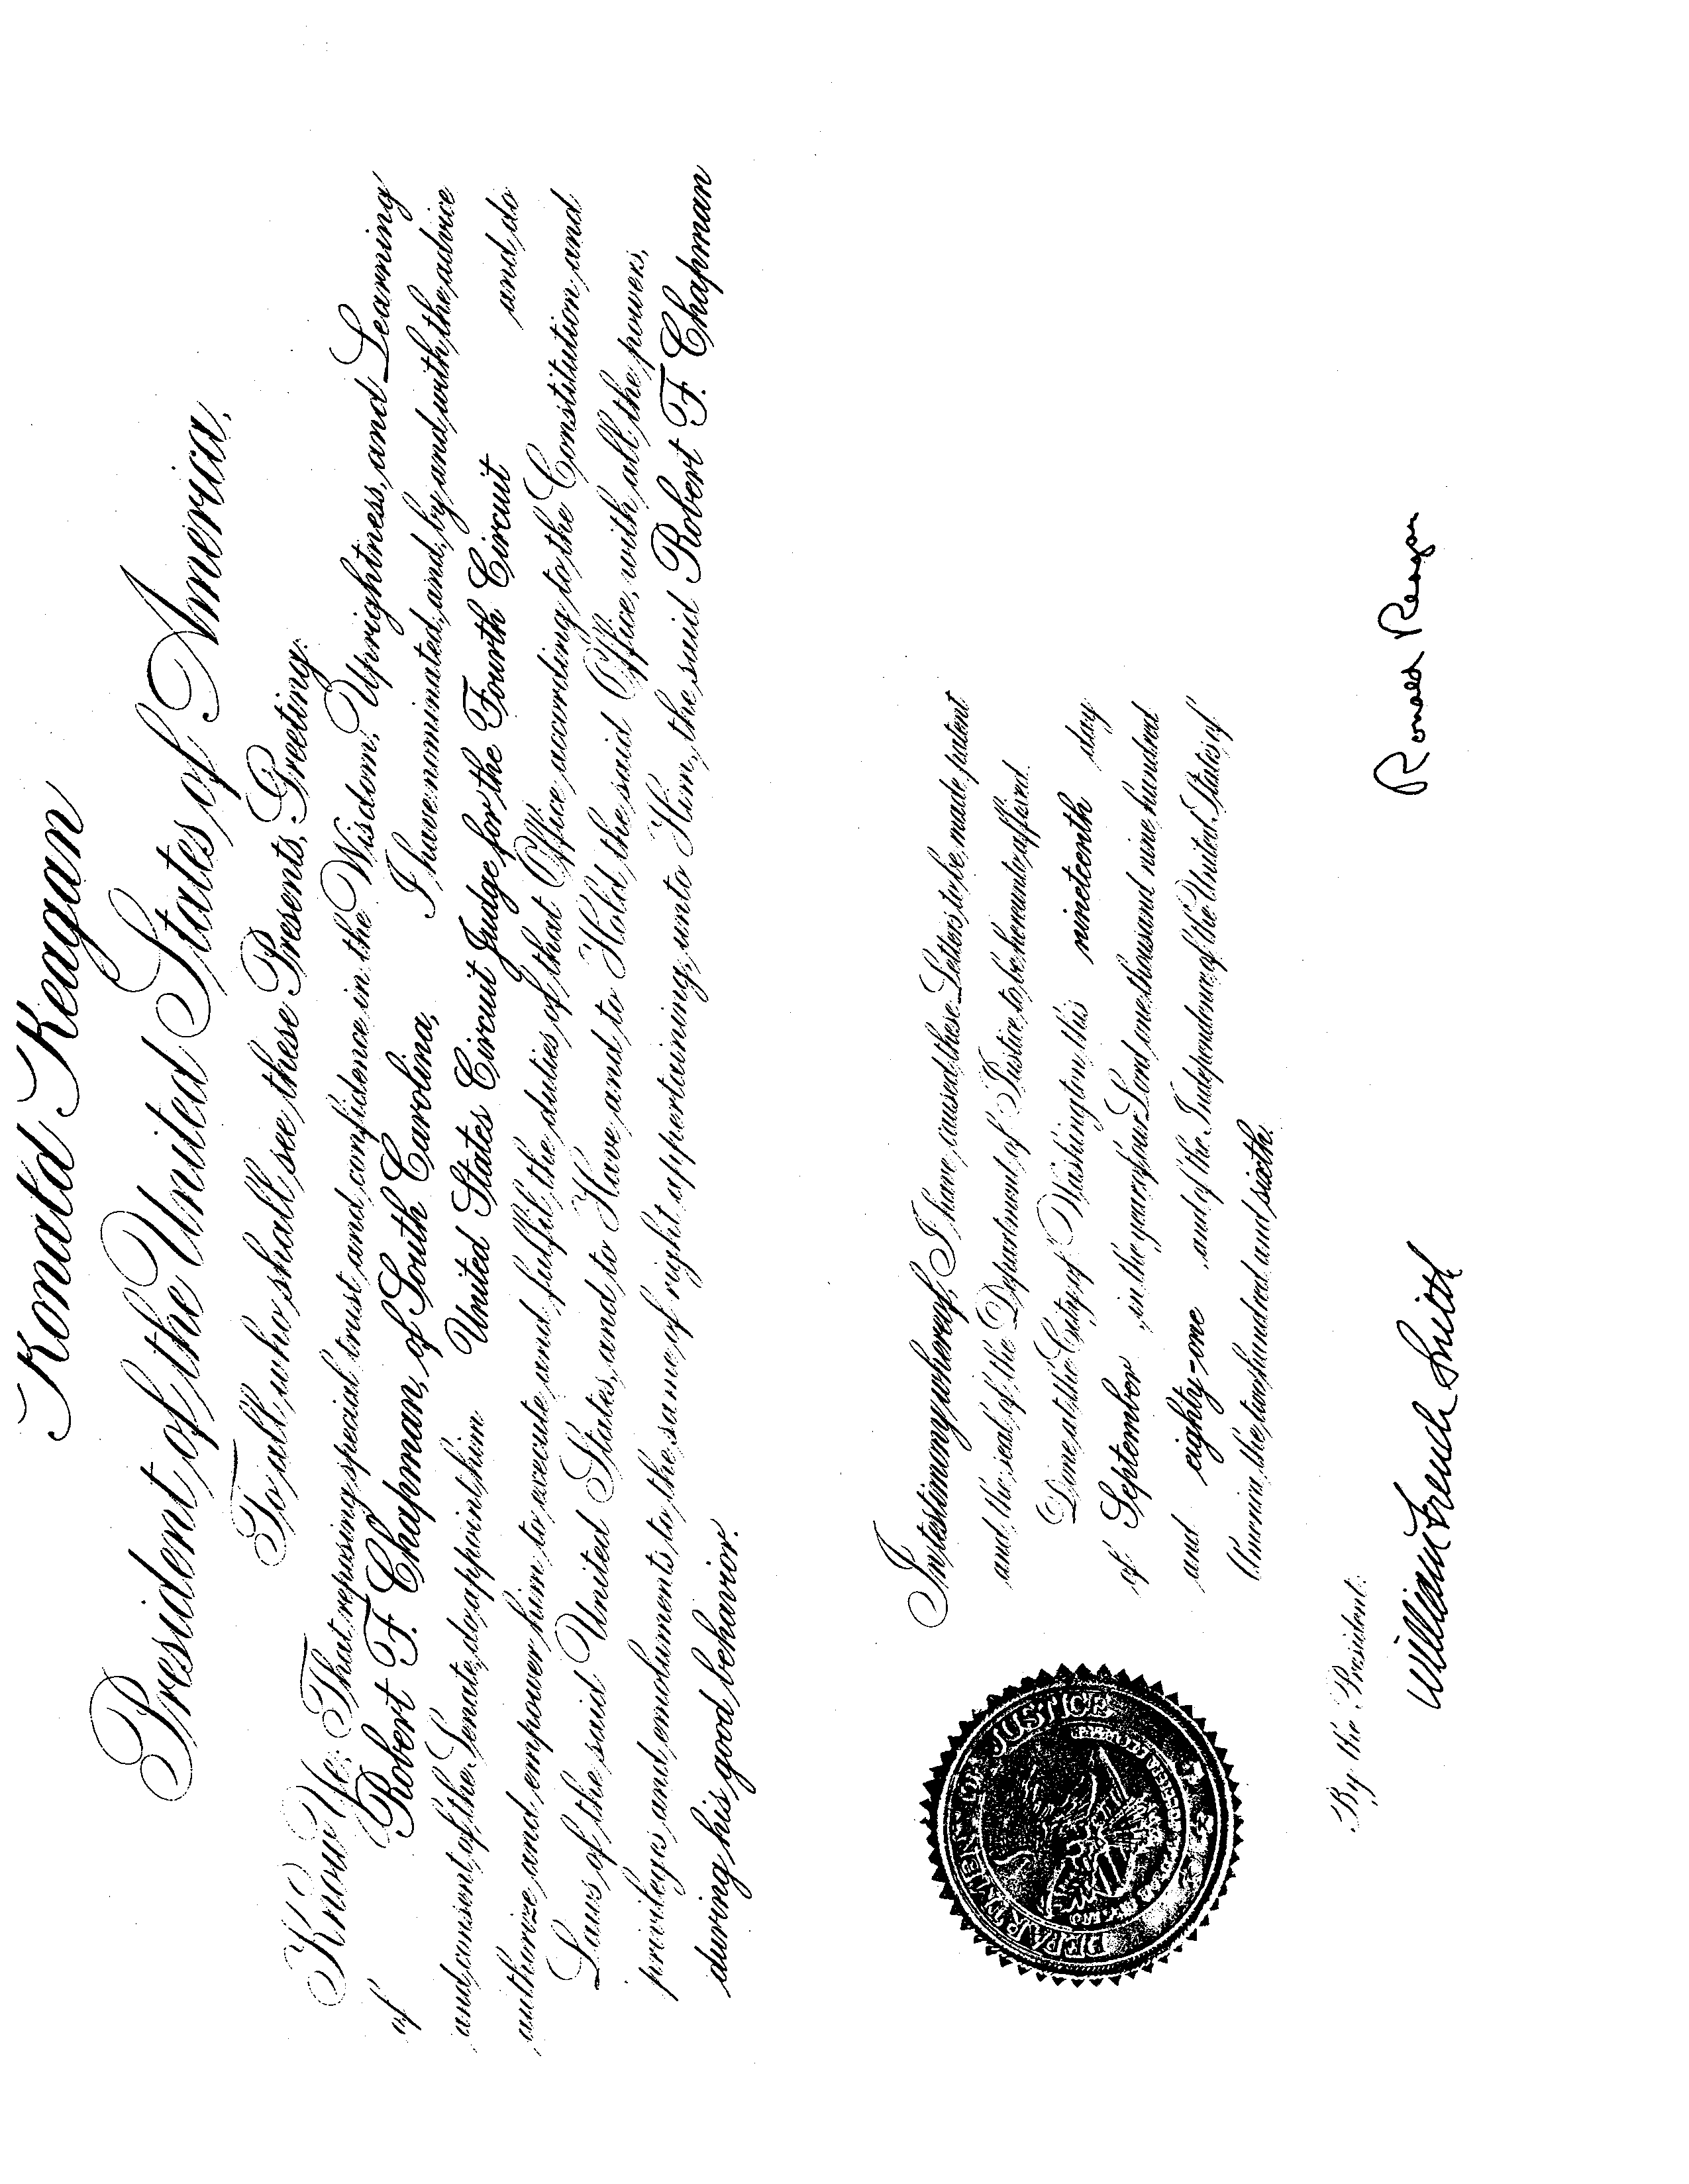 Ronald Reagan
President of the United States of America,
To all who shall see these Presents, Greeting:
Know Ye; That reposing special trust and confidence in the Wisdom, Uprightness, and Learning
of Robert F. Chapman, of South Carolina, I have nominated, and, by and with the advice
and consent of the Senate, do appoint him United States Circuit Judge for the Fourth Circuit and do
authorize and empower him to execute and fulfil the duties of that Office according to the Constitution and
Laws of the said United States, and to Have and to Hold the said Office, with all the powers,
privileges and emoluments to the same of right appertaining, unto Him, the said Robert F. Chapman
during his good behavior.
In testimony whereof, I have caused these Letters to be made patent
and the seal of the Department of Justice to be hereunto affixed.
Done at the City of Washington this nineteenth day
of September in the year of our Lord one thousand nine hundred
and eighty-one and of the Independence of the United States of
America the two hundred and sixth.
DEPARTMENT OF JUSTICE
By the President:
Ronald Reagan
William French Smith